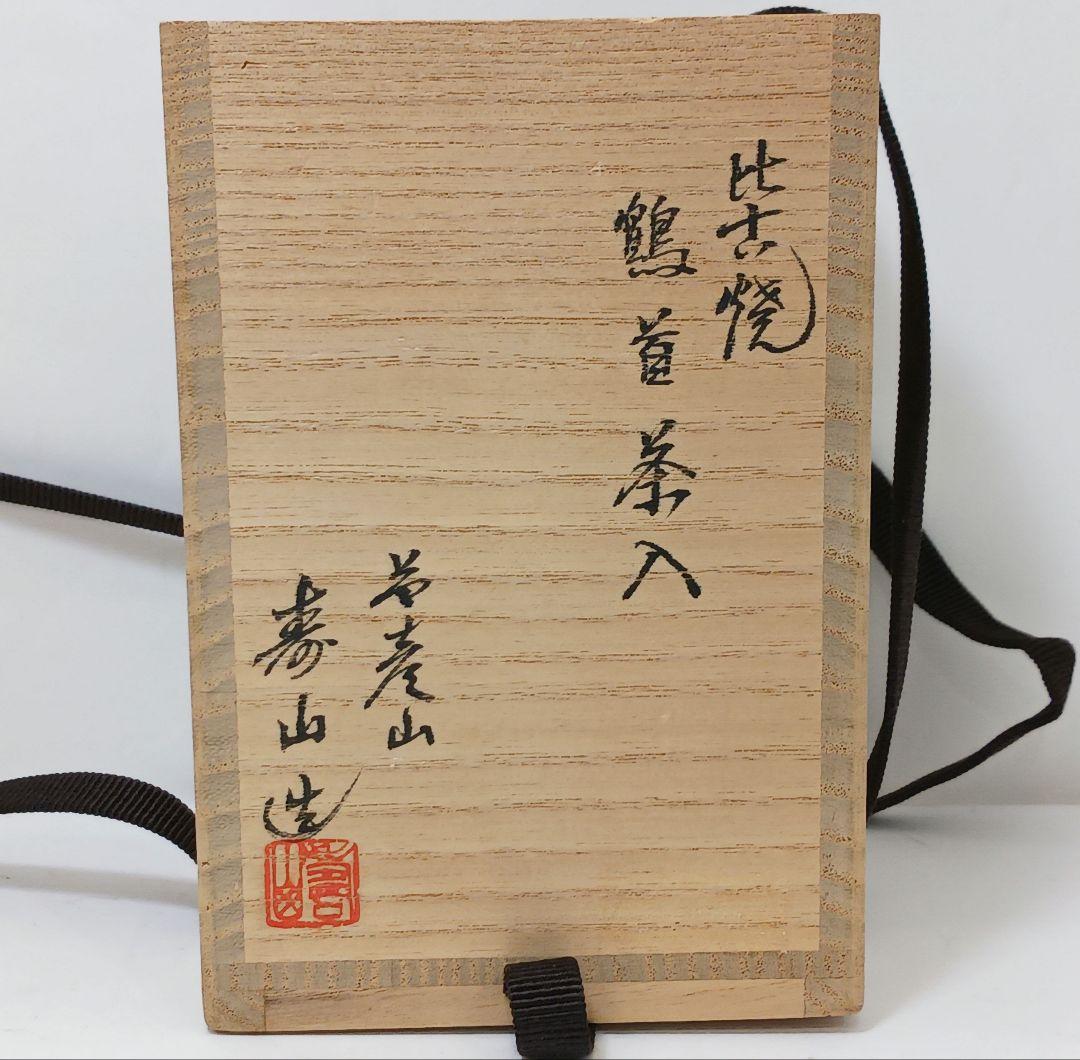 比古焼
鶴首茶入
英彦山
寿山造